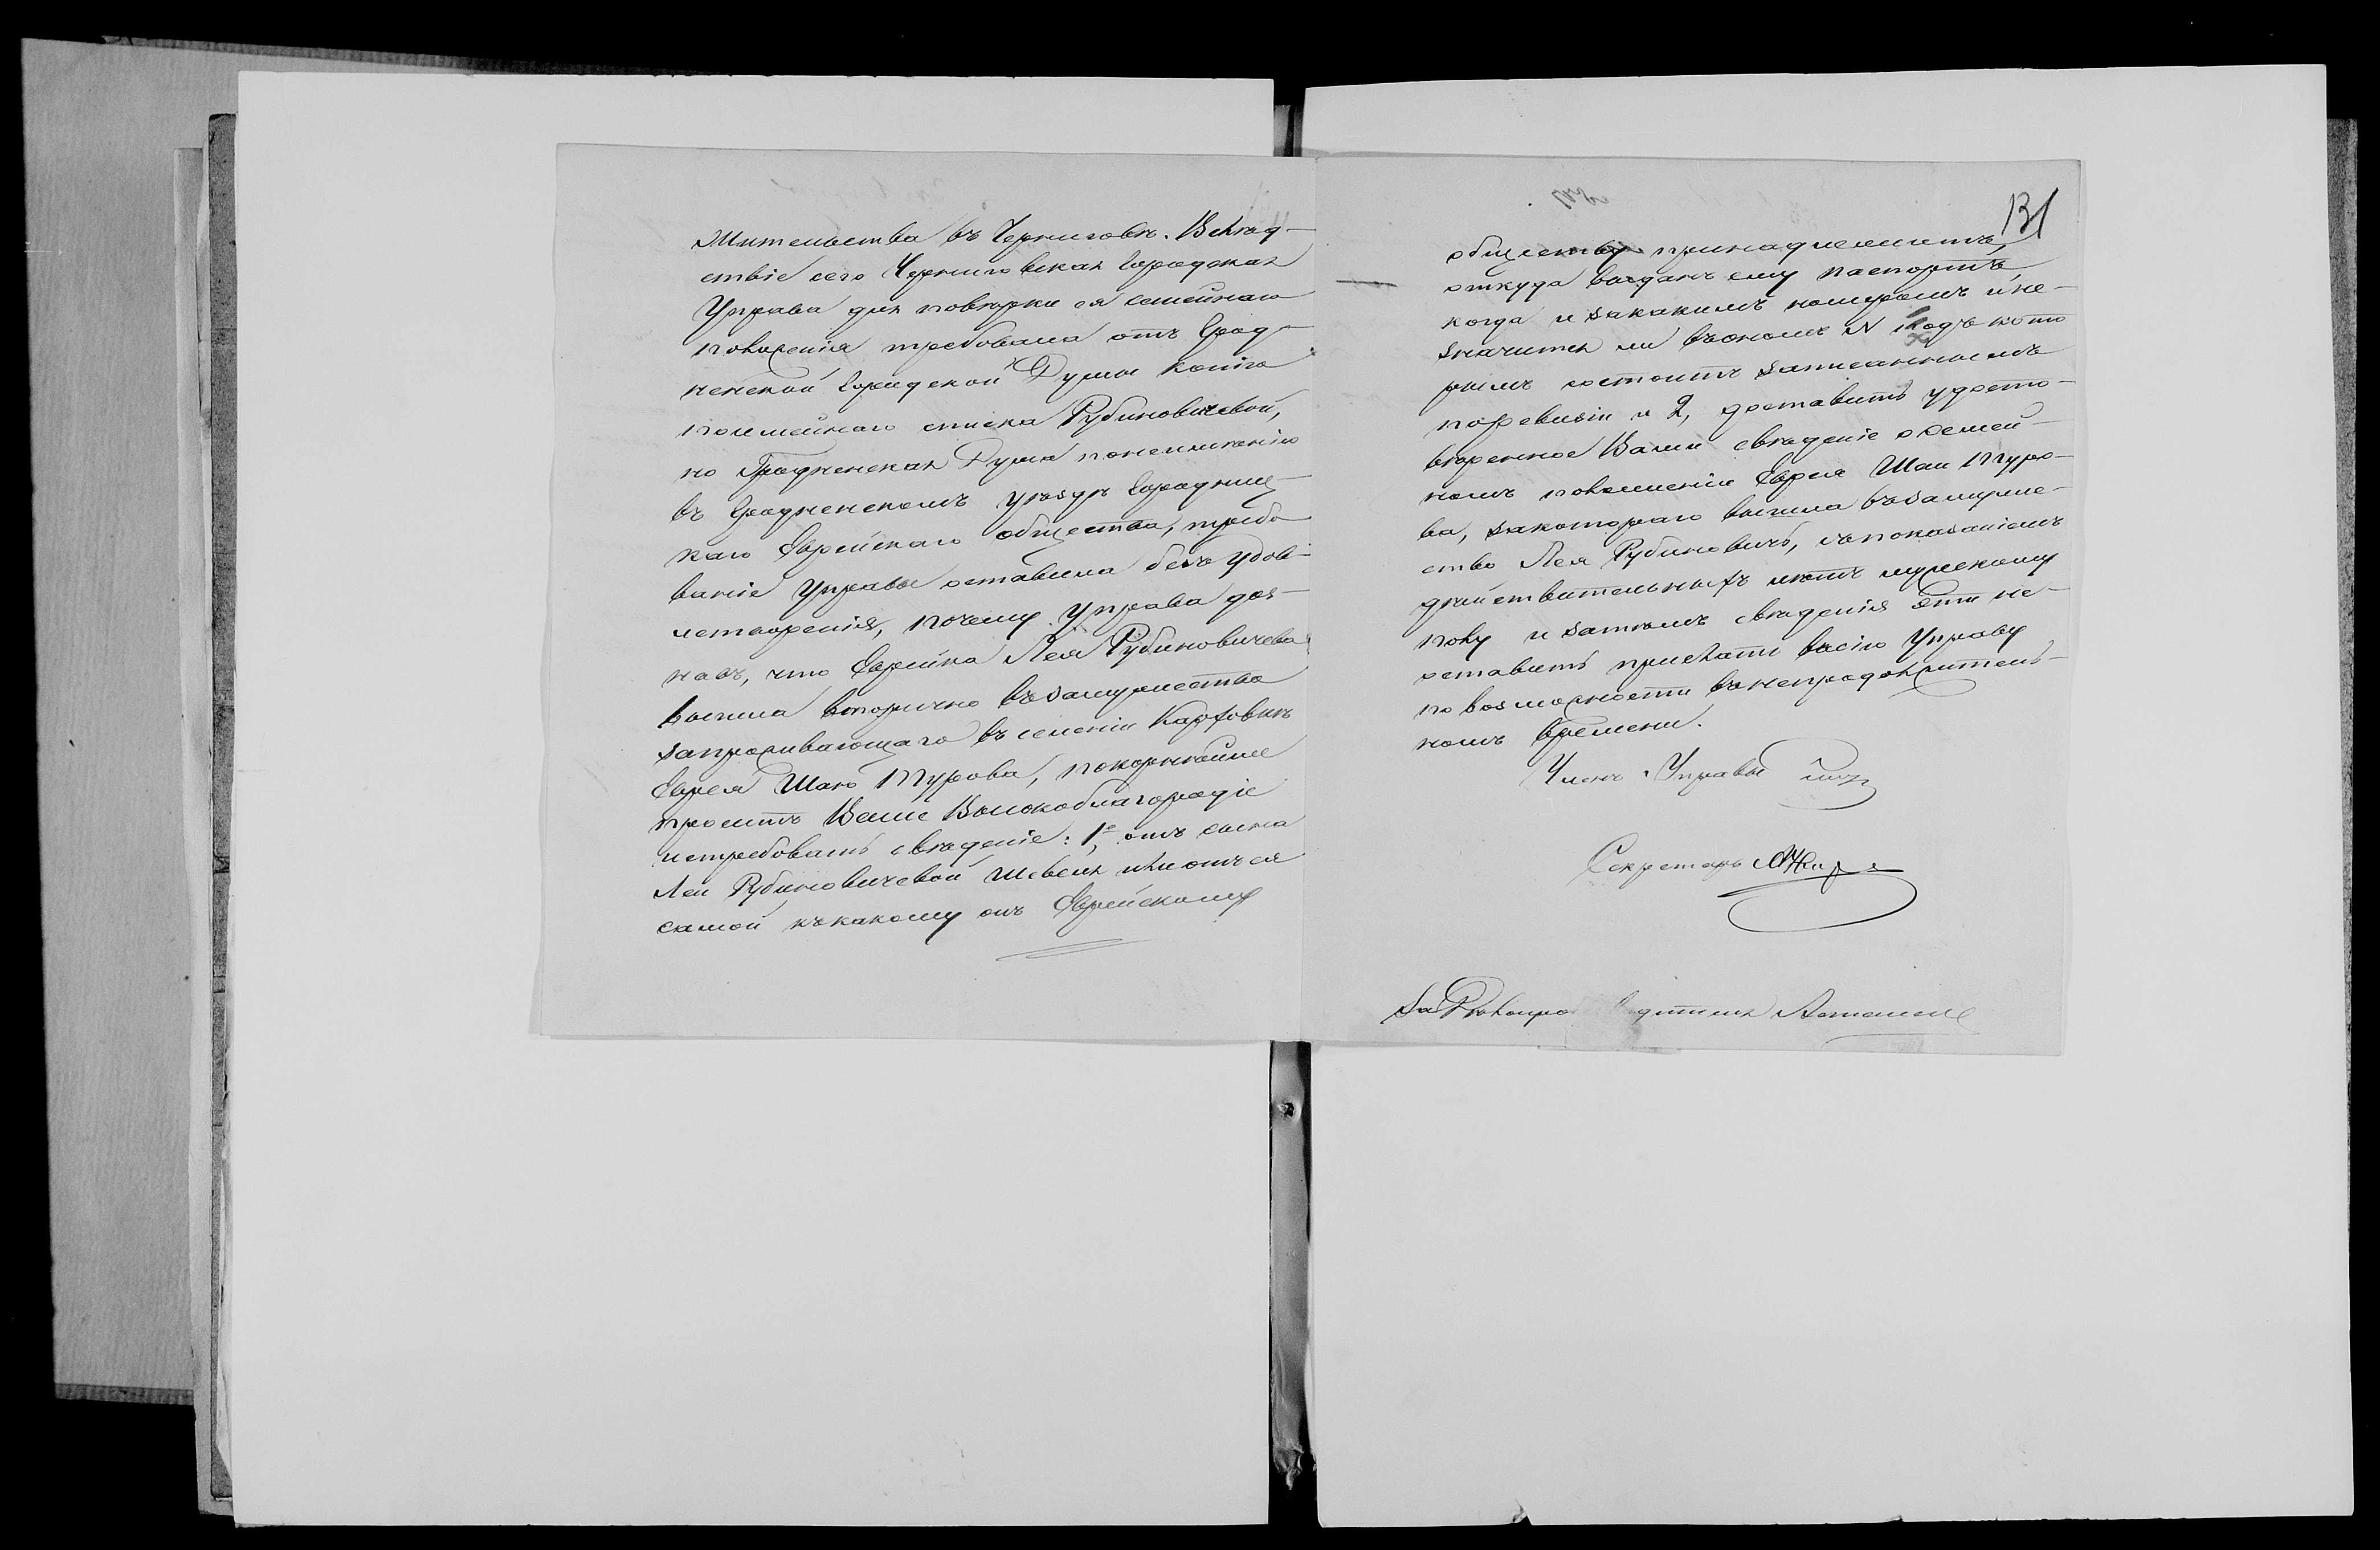 жительства въ Черниговѣ. Вслѣд-
ствіе сего Черниговская Городская
Управа для повѣрки ея семейнаго
положенія требовала отъ Грод-
ненской Городской Думы копію
посемейнаго списка Рубиновичевой,
но Гродненская Дума понеимѣнію
въ Гродненскомъ уѣздѣ Городниц-
каго Еврейскаго общества, требо
ваніе Управы оставила безъ удов-
летворенія, почему Управа доз-
навъ, что Еврейка Лея Рубиновичева
вышла вторично въ замужество
запроживающаго въ имѣніи Карховкѣ
Еврея Шаю Турова, покорнѣйше
проситъ Ваше Высокоблагородіе
истребовать свѣденіе: 1е, отъ сына
Леи Рубиновичевой Шевеля или отъ ея
самой къ какому онъ Еврейскому
131
обществу принадлежитъ,
откуда выданъ ему паспортъ,
когда и за какимъ номеромъ и не-
значится ли въ ономъ N подъ кото
рымъ состоитъ записаннымъ
по ревизіи и 2, доставить удосто-
вѣренное Вами свѣденіе о семей-
номъ положеніи Еврея Шаи Туро-
ва, за котораго вышла въ замуже-
ство Лея Рубиновичъ, съ показаніемъ
дѣйствительныхъ лѣтъ мужскому
полу и затѣмъ свѣденія эти не-
оставить прислать въ сію Управу
по возможности въ непродолжитель-
номъ времени.
Членъ Управы
Секретарь
За Дѣлопроизводителя